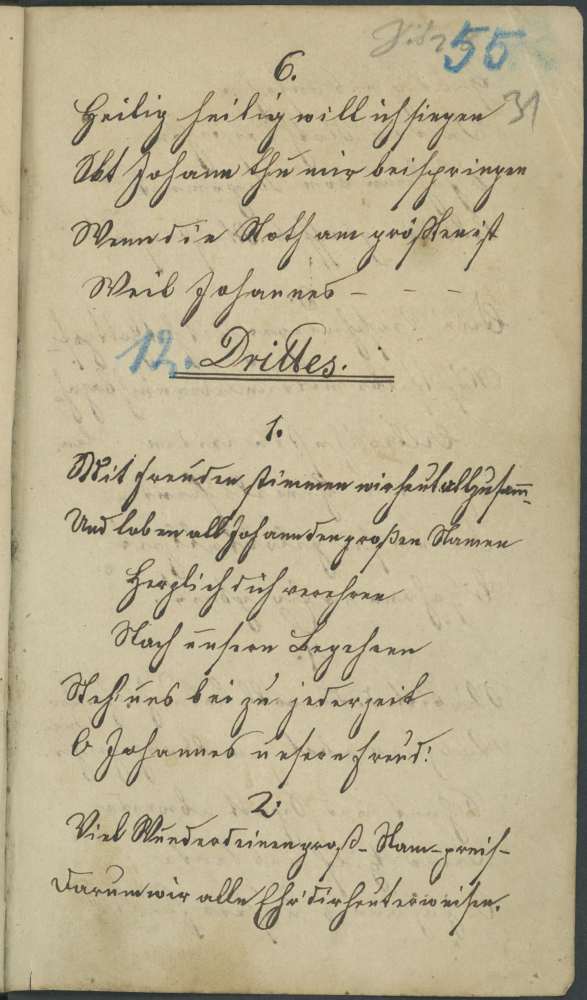 55
31
6.
Heilig heilig will ich singen
Skt Johann thu mir beispringen
Wenn die Noth am größten ist
Weil Johannes - - -
12. Drittes.
1.
Mit Freuden stimmen wir heut all zusam̄
Und loben all Johann den großen Namen
Herzlich dich verehren
Nach unsern Begehren
Steh' uns bei zu jederzeit
O Johannes unsere Freud!
2.
Viel Wunder deinen groß- Nam- preis-
Darum wir alle Ehr' dir heut erweisen.